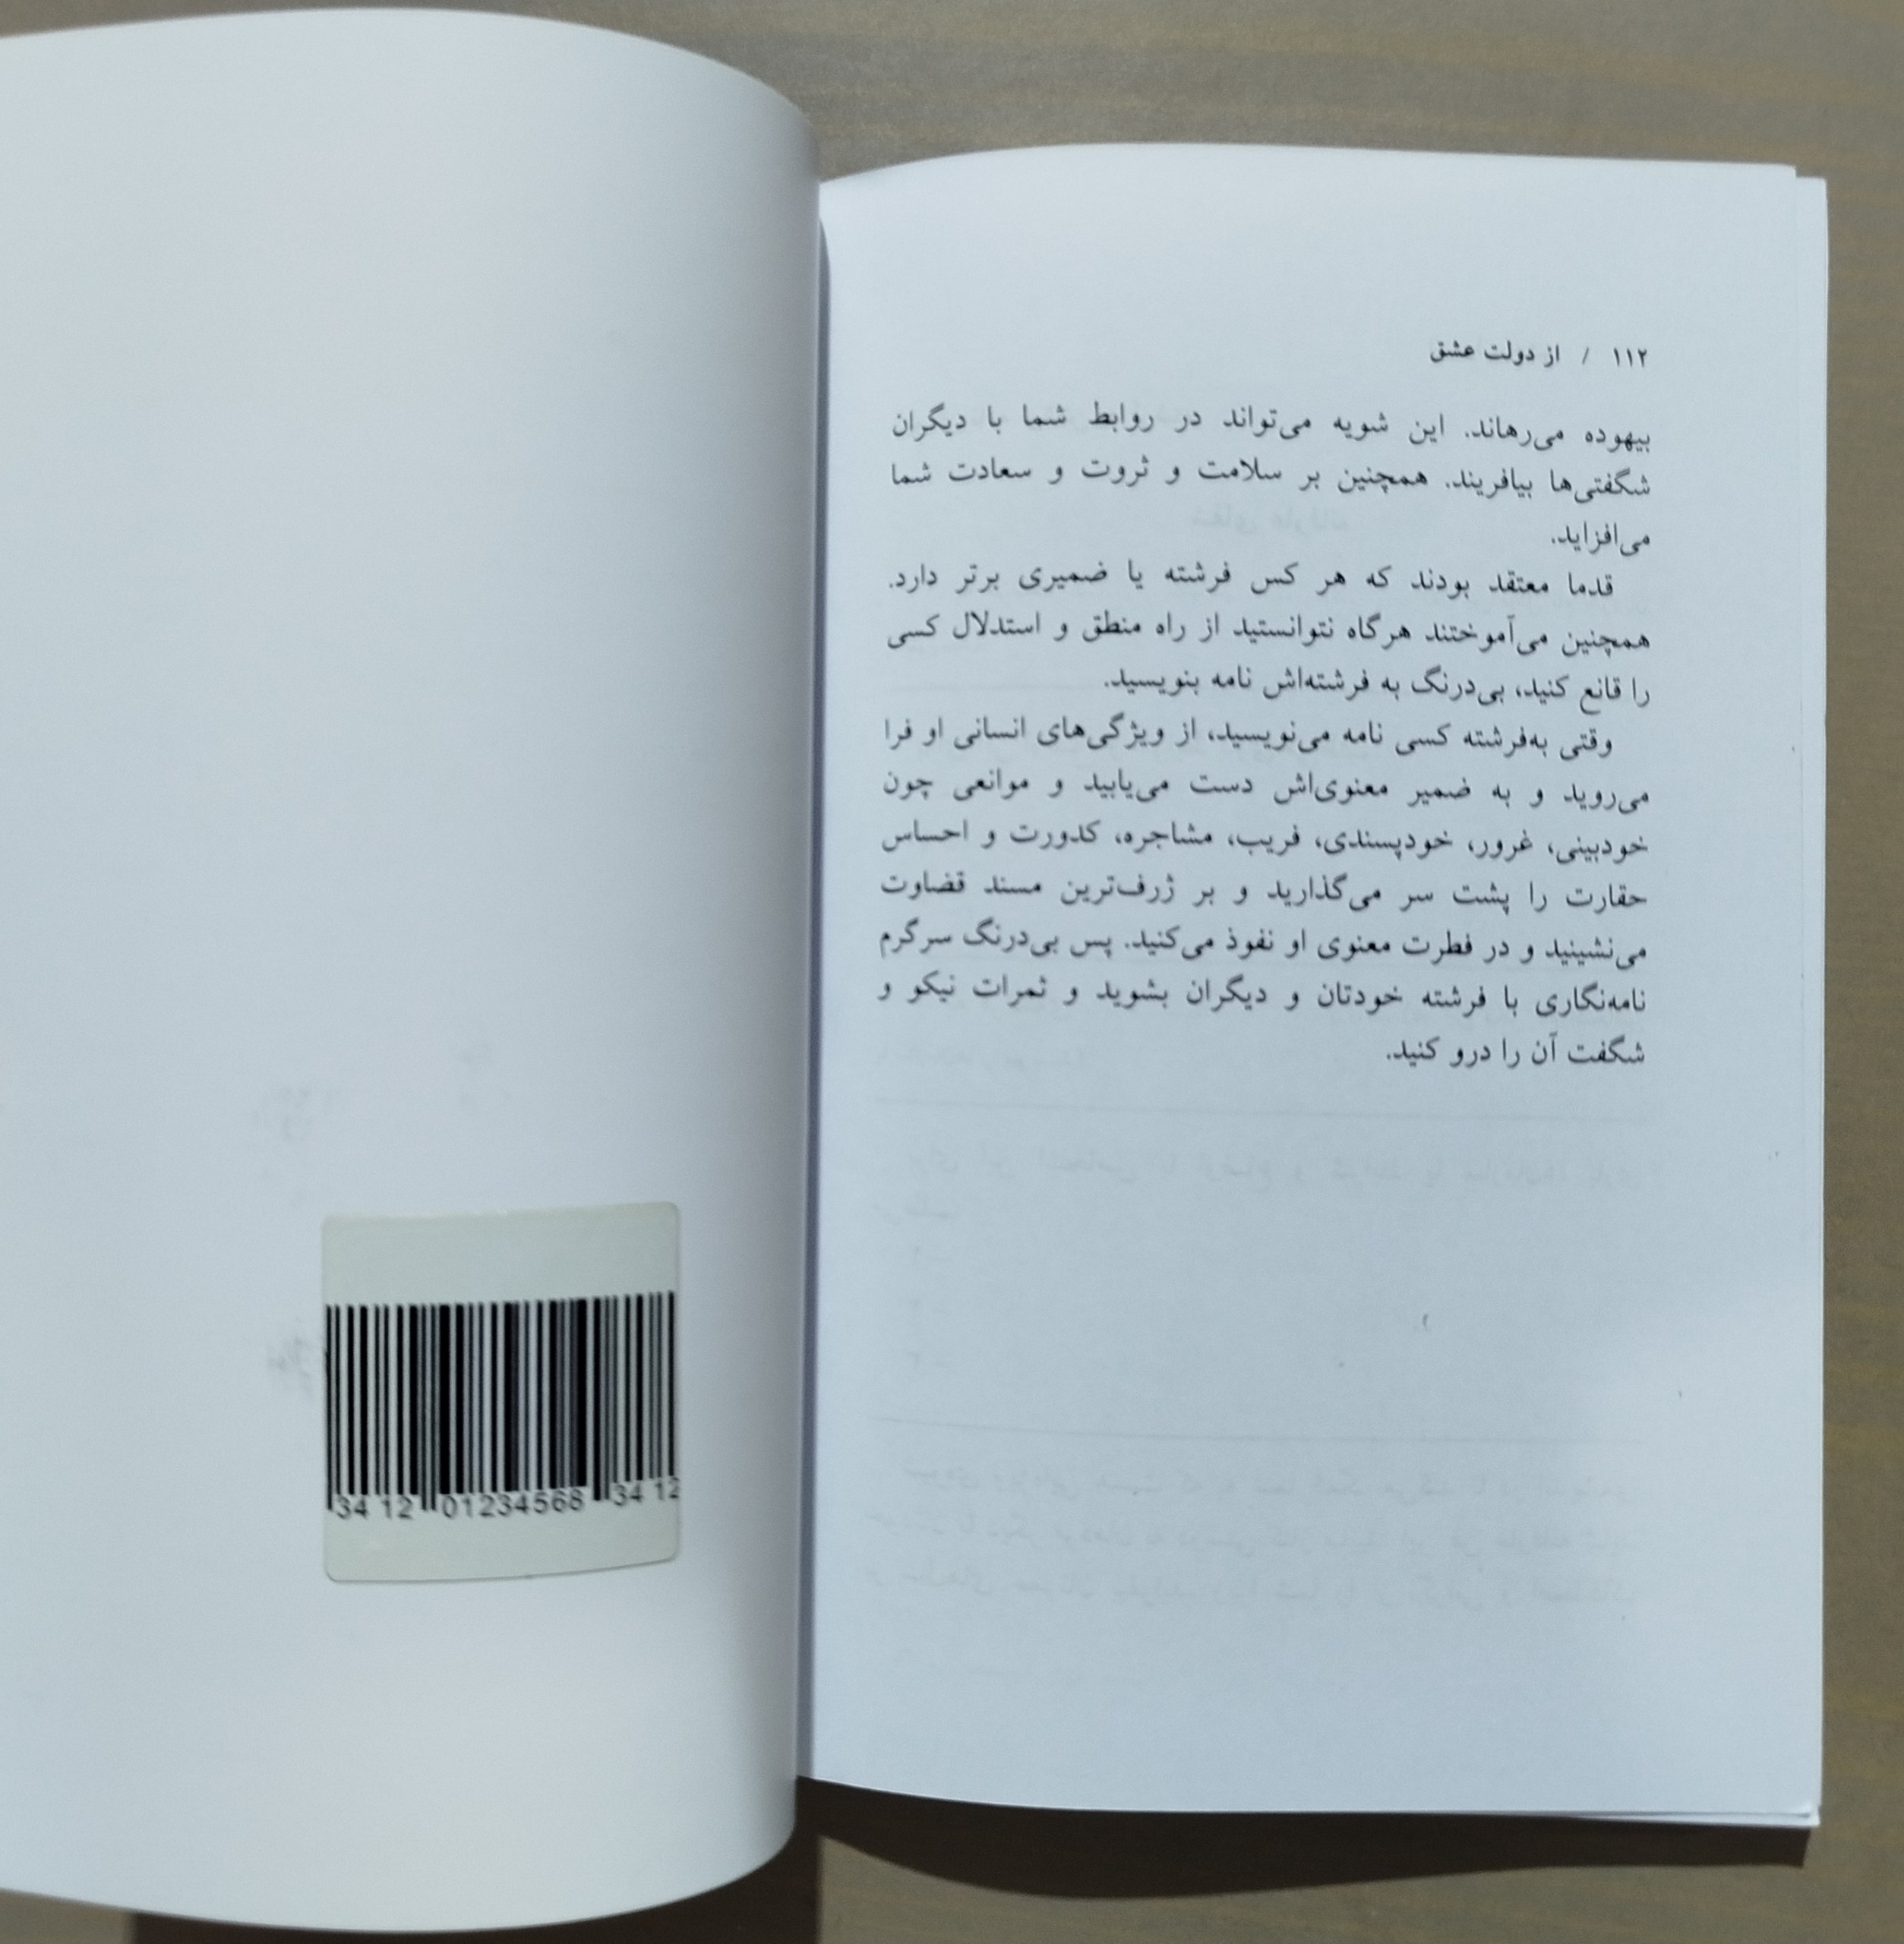 ۱۱۲ / از دولت عشق
بیهوده می‌رهاند. این شویه می‌تواند در روابط شما با دیگران
شگفتی‌ها بیافریند. همچنین بر سلامت و ثروت و سعادت شما
می‌افزاید.
قدما معتقد بودند که هر کس فرشته یا ضمیری برتر دارد.
همچنین می‌آموختند هرگاه نتوانستید از راه منطق و استدلال کسی
را قانع کنید، بی‌درنگ به فرشته‌اش نامه بنویسید.
وقتی به‌فرشته کسی نامه می‌نویسید، از ویژگی‌های انسانی او فرا
می‌روید و به ضمیر معنوی‌اش دست می‌یابید و موانعی چون
خودبینی، غرور، خودپسندی، فریب، مشاجره، کدورت و احساس
حقارت را پشت سر می‌گذارید و بر ژرف‌ترین مسند قضاوت
می‌نشینید و در فطرت معنوی او نفوذ می‌کنید. پس بی‌درنگ سرگرم
نامه‌نگاری با فرشته خودتان و دیگران بشوید و ثمرات نیکو و
شگفت آن را درو کنید.
34 12 01234568 34 12